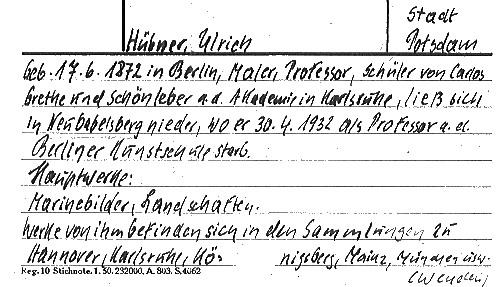 Stadt
Hübner, Ulrich
Potsdam
Geb. 17.6.1872 in Berlin, Maler, Professor, Schüler von Carlos
Grethe und Schönleber a.d. Akademie in Karlsruhe, ließ sich
in Neubabelsberg nieder, wo er 30.4.1932 als Professor a.d.
Berliner Kunstschule starb.
Hauptwerke:
Marinebilder, Landschaften.
Werke von ihm befinden sich in den Sammlungen zu
Hannover, Karlsruhe, Kö- nigsberg, Mainz, München usw.
Reg. 10 Stichnote. 1. 50. 232000. A. 803. S. 4062
(Wenden)